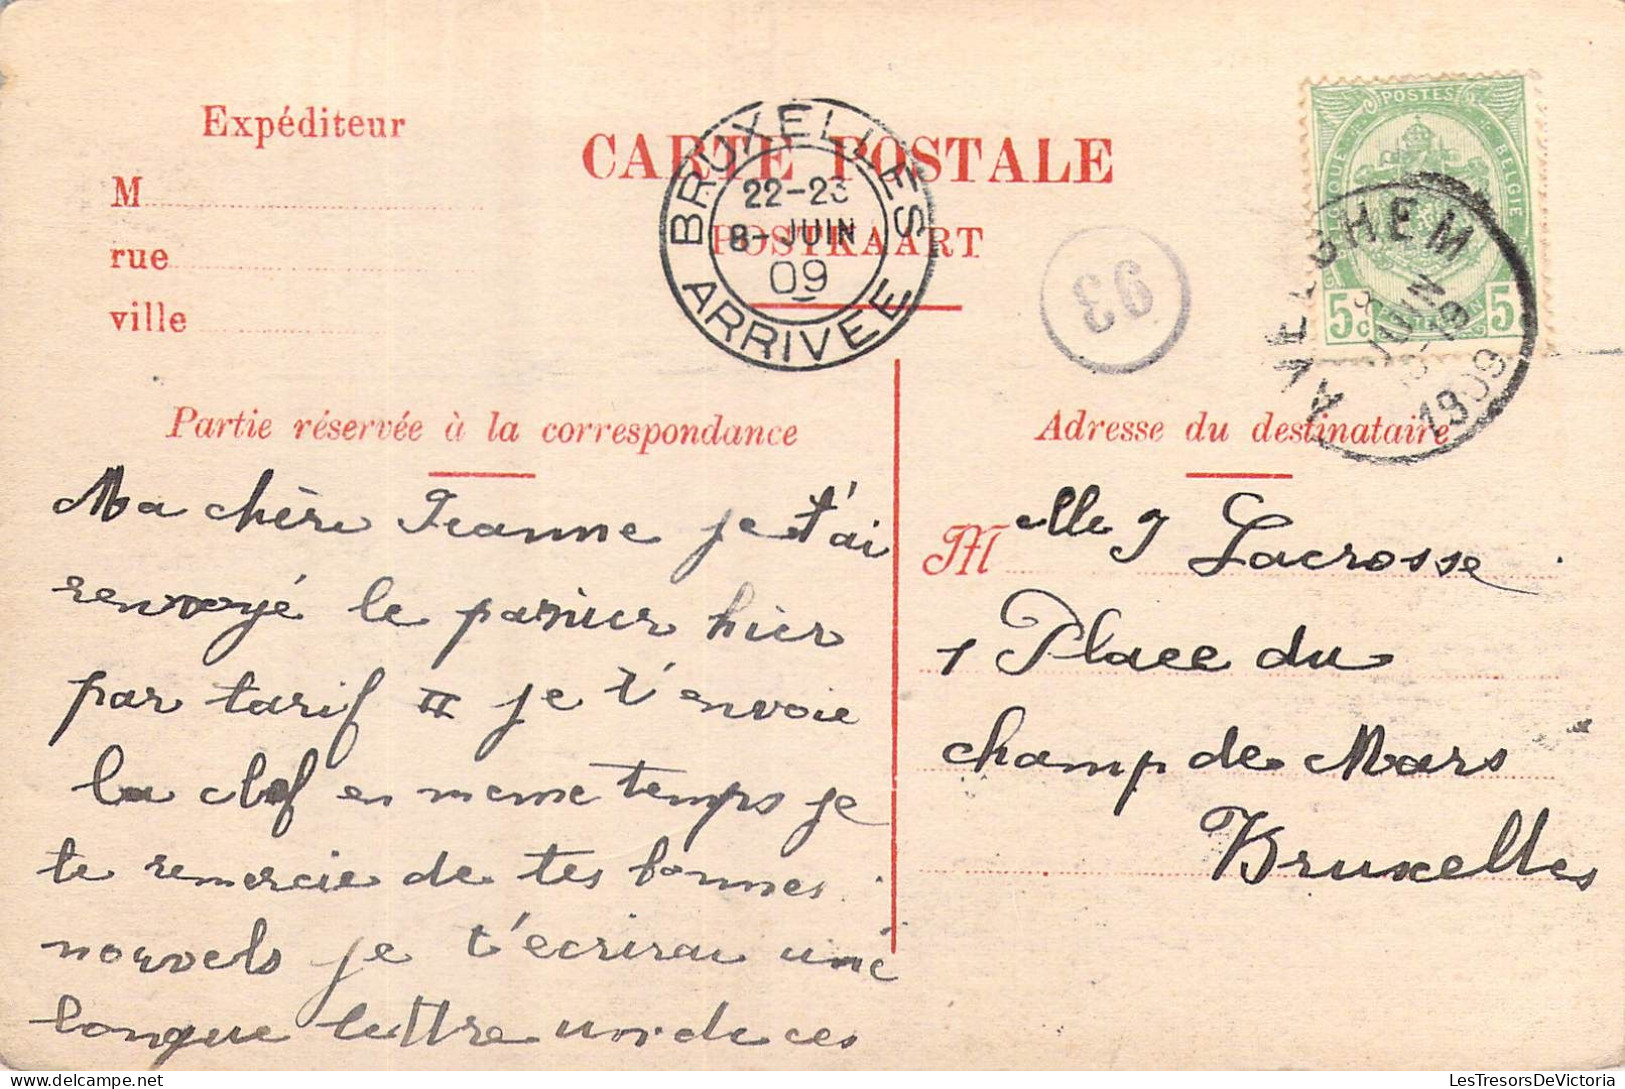 Expéditeur
M
rue
ville
CARTE POSTALE
POSTKAART
BRUXELLES
22-23
8-JUIN
09
ARRIVEE
93
POSTES
BELGIQUE
BELGIE
5c
5
AVELGHEM
8
JUIN
1909
Partie réservée à la correspondance
Adresse du destinataire
Ma chère Jeanne je t'ai
renvoyé le panier hier
par tarif II je t'envoie
la clef en meme temps je
te remercie de tes bonnes
nouvels je t'ecrirai une
longue lettre un de ces
Melle J Lacrosse
1 Place du
champ de Mars
Bruxelles
LesTresorsDeVictoria